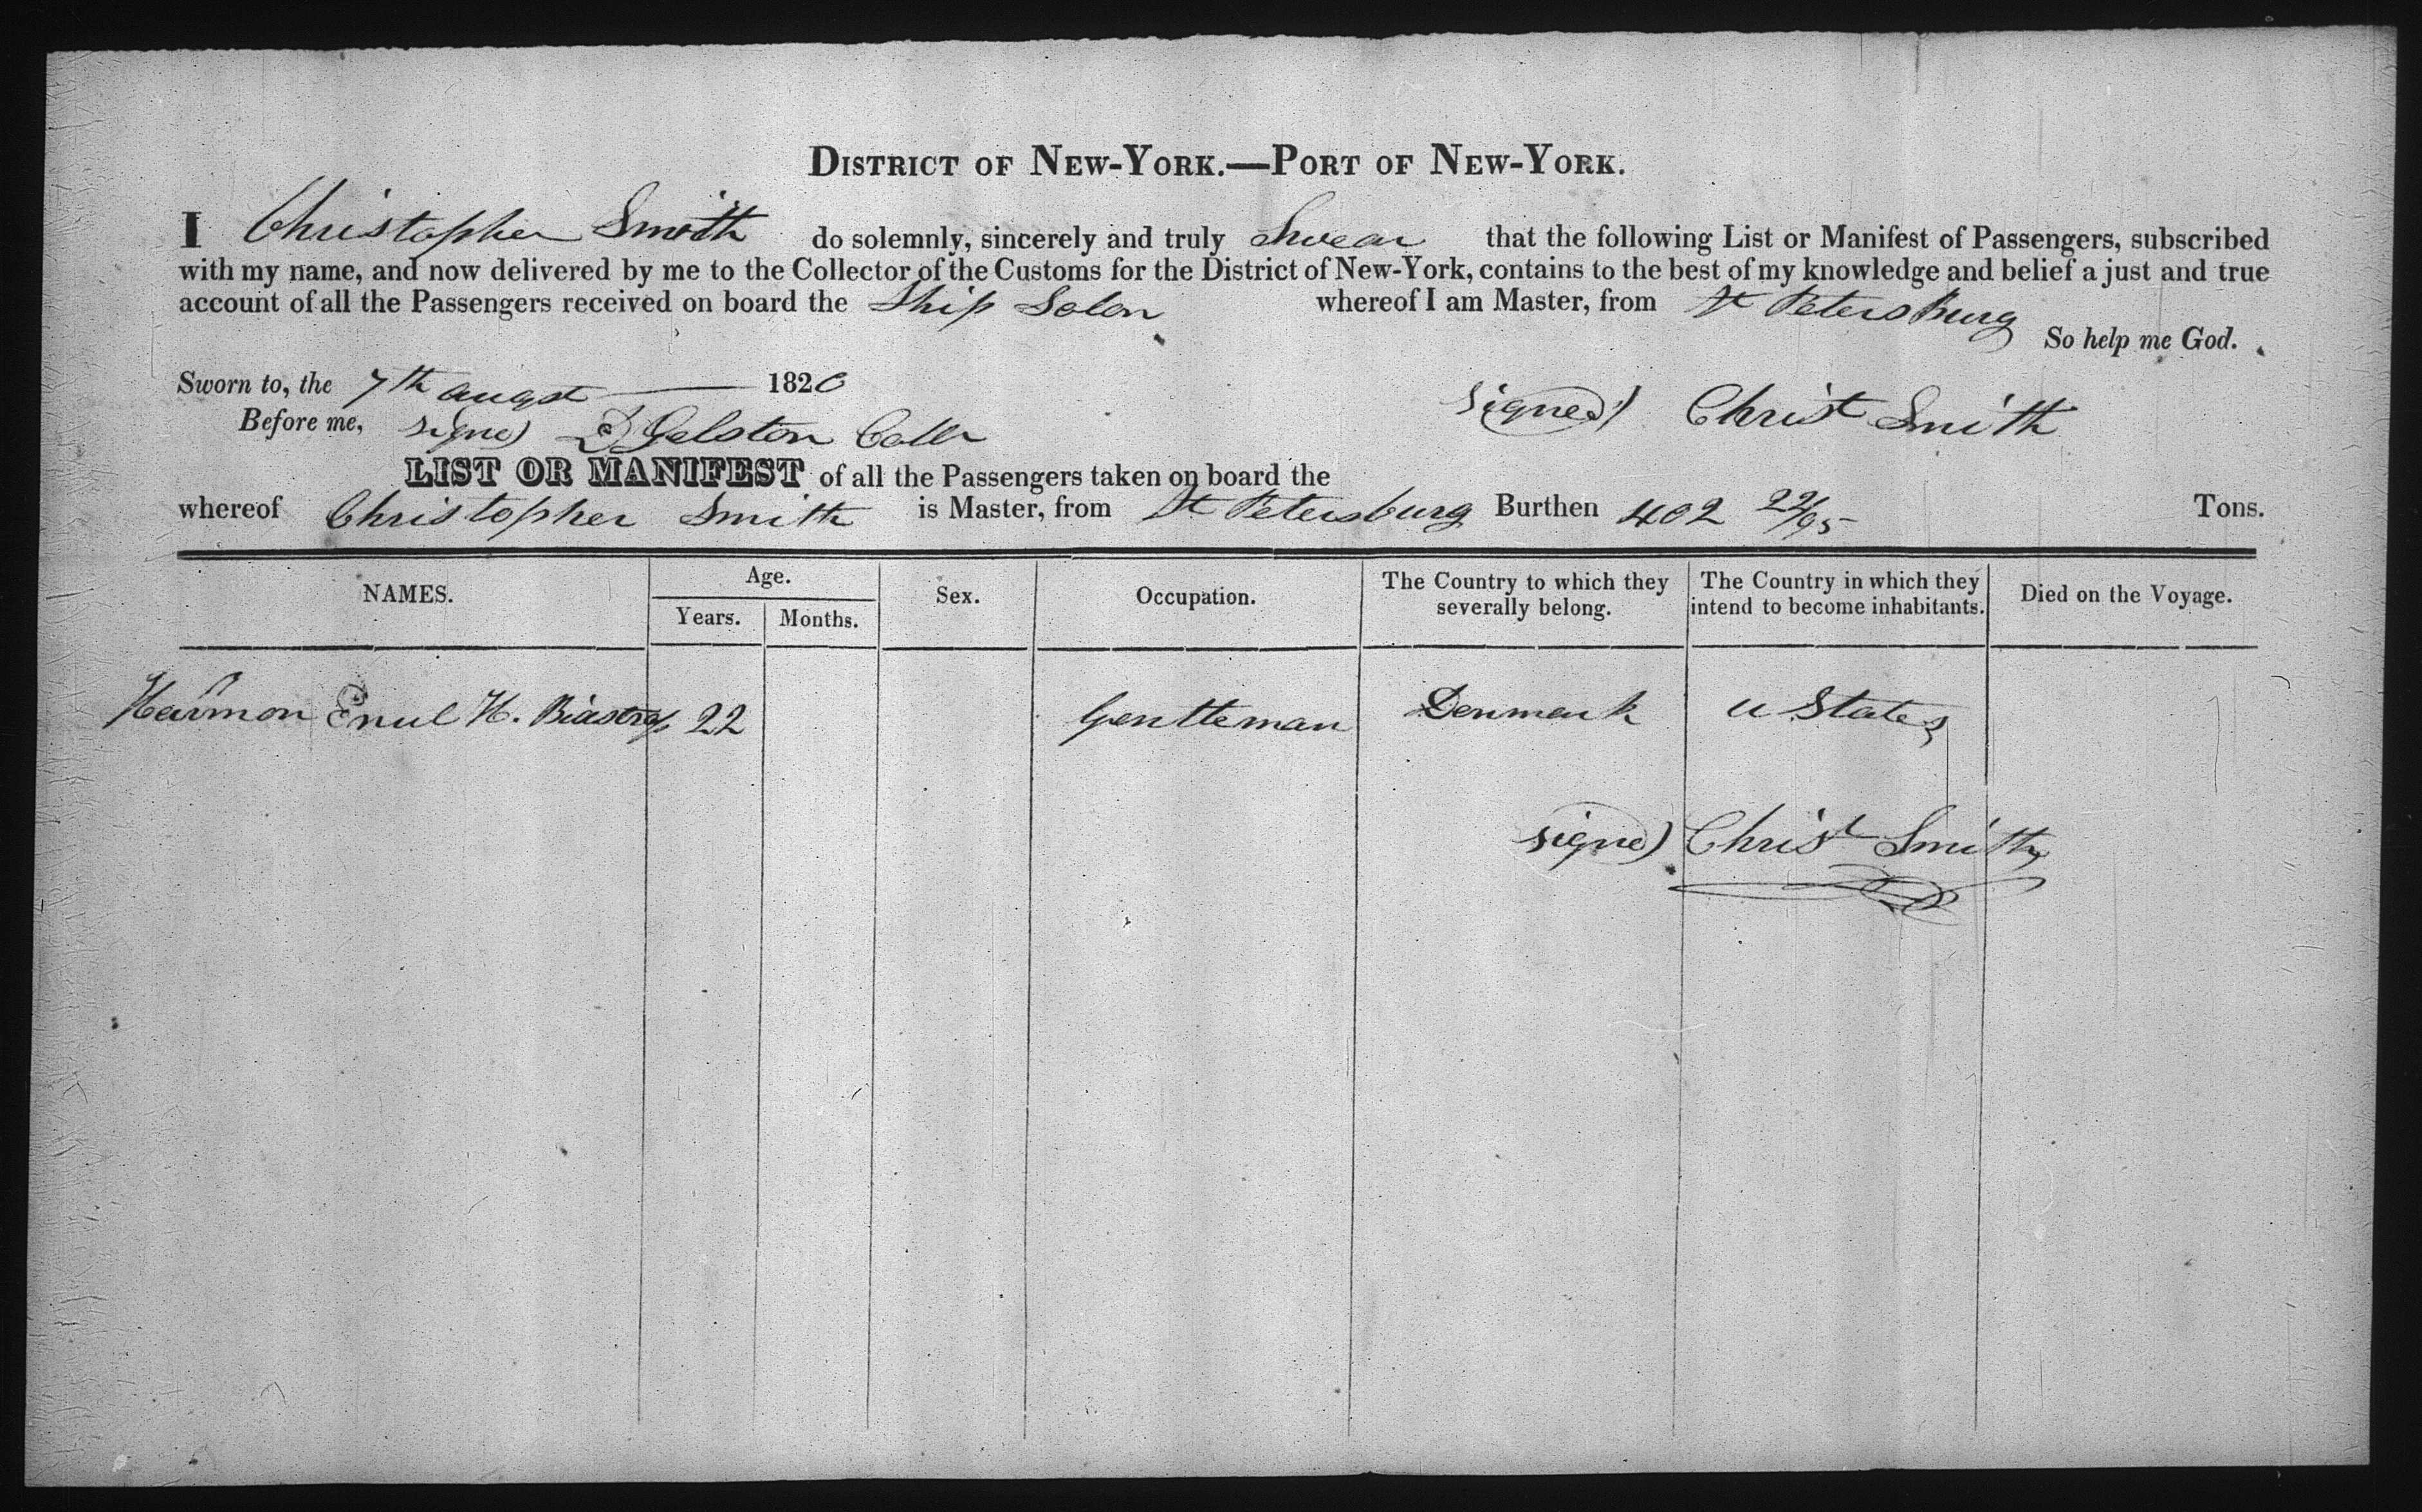 DISTRICT OF NEW-YORK.—PORT OF NEW-YORK.
I Christopher Smith do solemnly, sincerely and truly Swear that the following List or Manifest of Passengers, subscribed
with my name, and now delivered by me to the Collector of the Customs for the District of New-York, contains to the best of my knowledge and belief a just and true
account of all the Passengers received on board the Ship Solon whereof I am Master, from St Petersburg
So help me God.
Sworn to, the 7th augst 1820
signed) Christ Smith
Before me, signed) D Gelston Collr
LIST OR MANIFEST of all the Passengers taken on board the
whereof Christopher Smith is Master, from St Petersburg Burthen 402 22/95 Tons.
NAMES. Age. Years. Months. Sex. Occupation. The Country to which they severally belong. The Country in which they intend to become inhabitants. Died on the Voyage.
Harmon H. 22 Gentleman Denmark U States
signed) Christ Smith